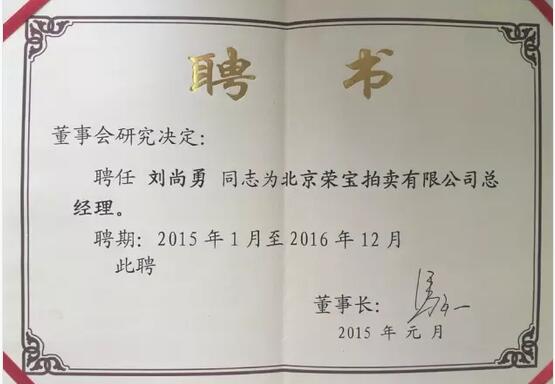 聘书
董事会研究决定:
聘任 刘尚勇 同志为北京荣宝拍卖有限公司总
经理。
聘期: 2015年1月至2016年12月
此聘
董事长:
2015 年 元 月